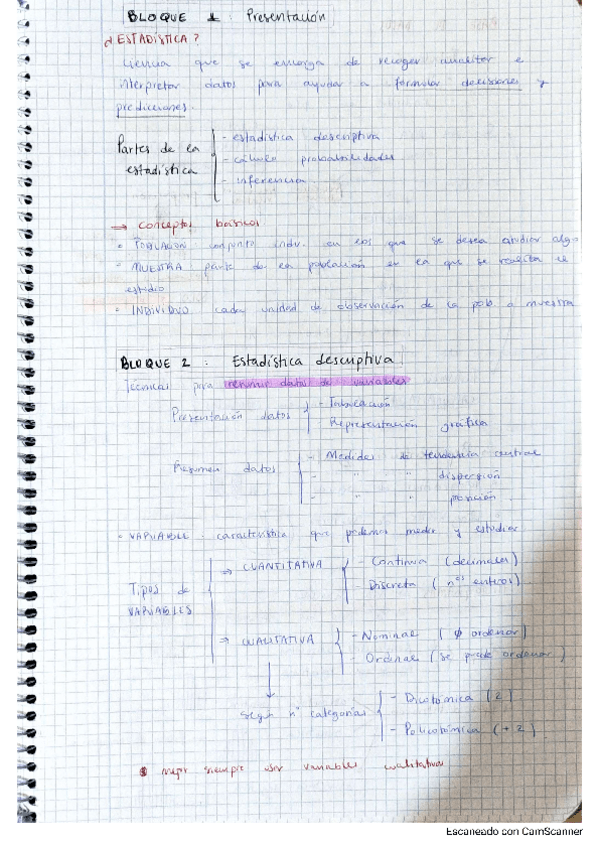 BLOQUE 1. Presentación
¿ESTADÍSTICA?
Ciencia que se encarga de recoger analizar e
interpretar datos para ayudar a formular decisiones y
predicciones.
Partes de la estadística
- estadística descriptiva
- cálculo probabilidades
- inferencia
→ conceptos básicos
• POBLACION conjunto indiv. en los que se desea estudiar algo
• MUESTRA parte de la población en la que se realiza el
estudio
• INDIVIDUO cada unidad de observación de la pob. o muestra
BLOQUE 2. Estadística descriptiva
Técnicas para resumir datos de variables
Presentación datos
- Tabulación
- Representación gráfica
Resumen datos
- Medidas de tendencia central
- " " dispersión
- " " posición
• VARIABLE característica que podemos medir y estudiar
Tipos de VARIABLES
→ CUANTITATIVA
- Continua (decimales)
- Discreta (nºs enteros)
→ CUALITATIVA
- Nominal (ø ordenar)
- Ordinal (se puede ordenar)
según nº categorías
- Dicotómica (2)
- Policotómica (+2)
mejor siempre usar variables cualitativas
Escaneado con CamScanner